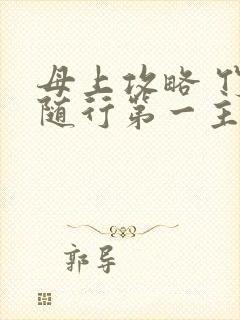 母上攻略
随行第一主
郭导